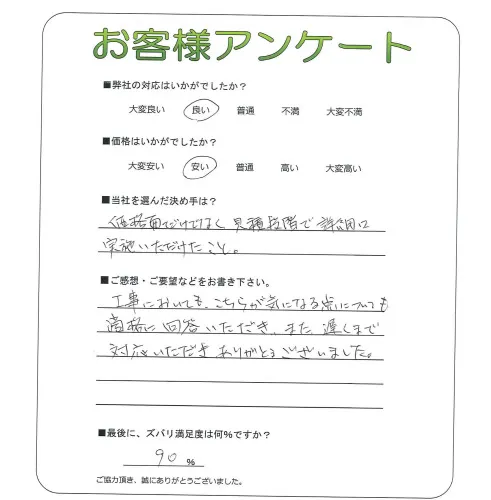 お客様アンケート
■弊社の対応はいかがでしたか？
大変良い 良い 普通 不満 大変不満
■価格はいかがでしたか？
大変安い 安い 普通 高い 大変高い
■当社を選んだ決め手は？
価格面だけでなく見積段階で詳細に
実施いただけたこと。
■ご感想・ご要望などをお書き下さい。
工事においても、こちらが気になる点についても
適格に回答いただき、また遅くまで
対応いただきありがとうございました。
■最後に、ズバリ満足度は何%ですか？
90 %
ご協力頂き、誠にありがとうございました。